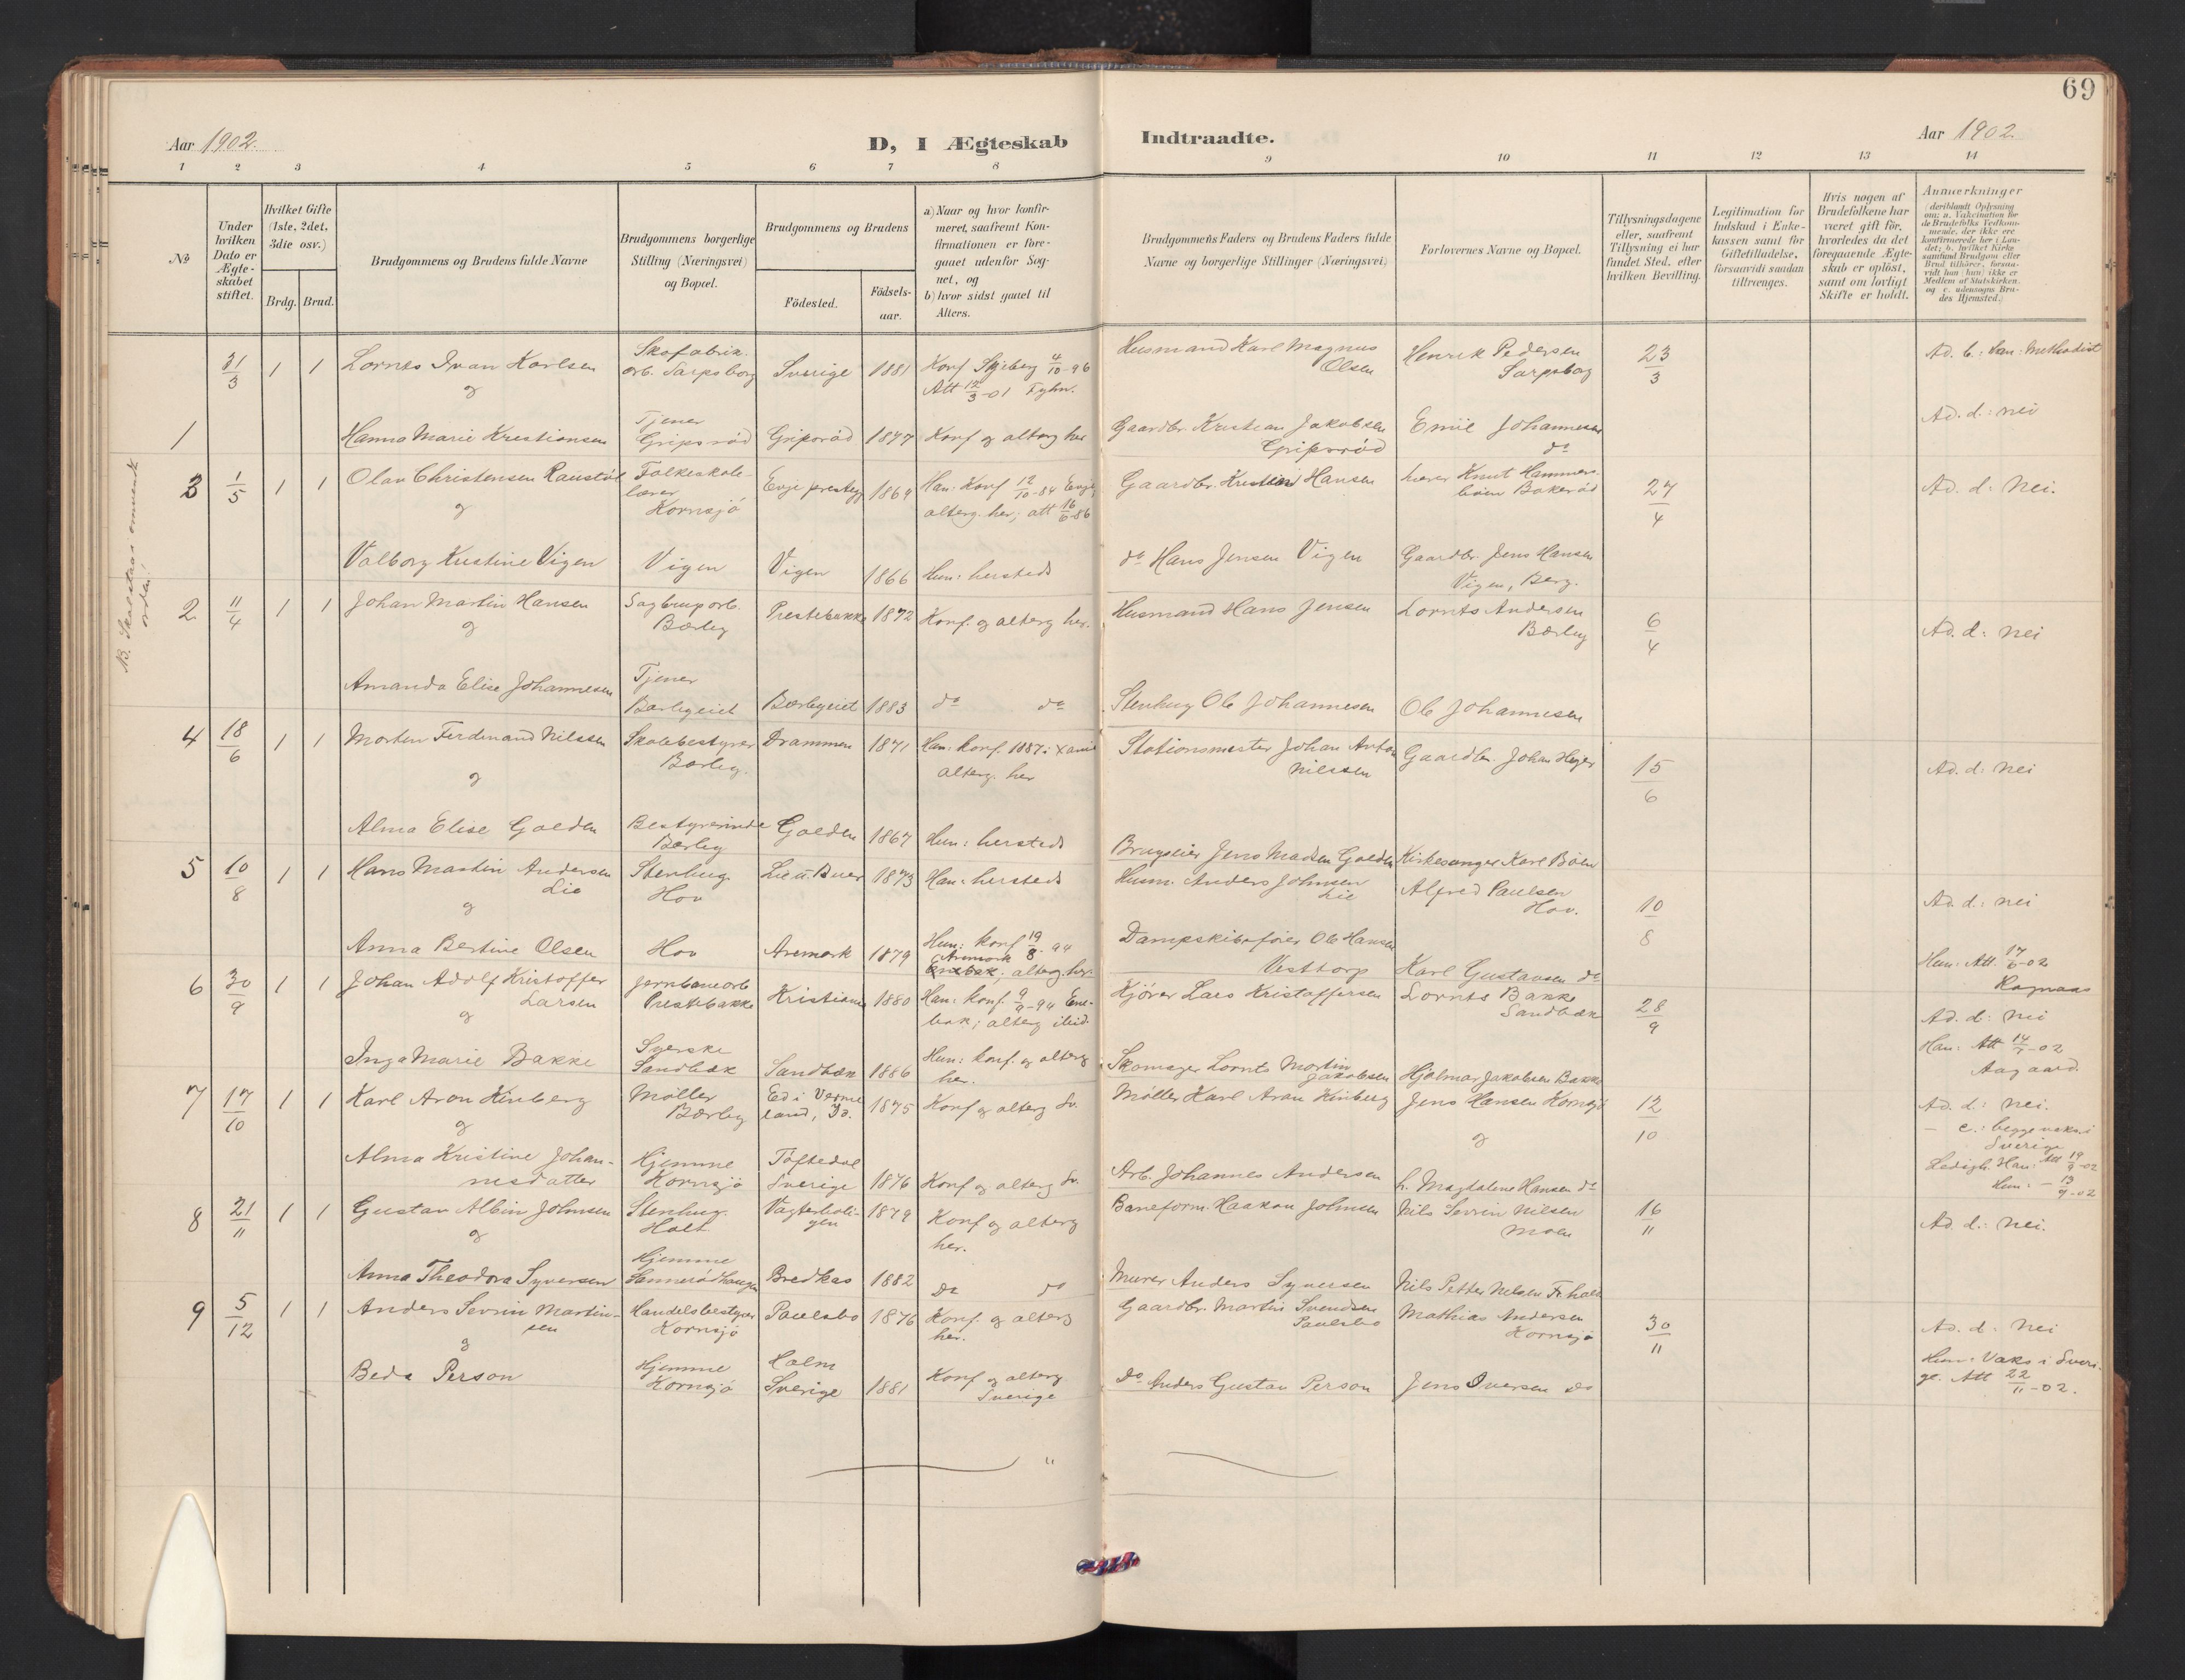 69
Aar 1902.
D, I Ægteskab
Indtraadte.
Aar 1902.
1 2 3 4 5 6 7 8 9 10 11 12 13 14
No
Under hvilken Dato er Ægteskabet stiftet.
Hvilket Gifte (1ste, 2det, 3die osv.)
Brdg. Brud.
Brudgommens og Brudens fulde Navne
Brudgommens borgerlige Stilling (Næringsvei) og Bopæl.
Brudgommens og Brudens
Födested.
Födsels-aar.
a) Naar og hvor konfir-
meret, saafremt Kon-
firmationen er fore-
gaaet udenfor Sog-
net, og
b) hvor sidst gaaet til
Alters.
Brudgommens Faders og Brudens Faders fulde
Navne og borgerlige Stillinger (Næringsvei)
Forlovernes Navne og Bopæl.
Tillysningsdagene
eller, saafremt
Tillysning ei har
fundet Sted, efter
hvilken Bevilling.
Legitimation for
Indskud i Enke-
kassen samt for
Giftetilladelse,
forsaavidt saadan
tiltrænges.
Hvis nogen af
Brudefolkene har
været gift för,
hvorledes da det
foregaaende Ægte-
skab er oplöst,
samt om lovligt
Skifte er holdt.
Anmerkninger
(deriblandt Oplysning
om: a. Vakcination for
de Brudefolks Vedkom-
mende, der ikke ere
konfirmerede her i Lan-
det; b. hvilket Kirke-
samfund Brudgom eller
Brud tilhörer, forsaa-
vidt han (hun) ikke er
Medlem af Statskirken,
og c. udensogns Bru-
des Hjemsted.)
31/3 1 1 Lornts Ivan Karlsen Skofabrik. arb. Sarpsborg Sverige 1881 Konf Skjeberg 4/10-96 Att 12/3-01 Fyhn. Husmand Karl Magnus Olsen Henrik Pedersen Sarpsborg 23/3 Ad. b.: han: Methodist
og
Ad. d.: nei
1 Hanna Marie Kristiansen Tjener Gripsrød Gripsrød 1877 Konf og alterg her Gaardbr. Kristian Jakobsen Gripsrød Emil Johannesen do
3 1/5 1 1 Olav Christensen Raustøl Folkeskole-lærer Kornsjø Evje prestegj 1869 Han: Konf 12/10-84 Evje alterg. her; att 16/6-86 Gaardbr. Kristian Hansen lærer Knut Hammers-bøen Bakerød 24/4 Ad. d: Nei.
og
Valborg Kristine Vigen Vigen Vigen 1866 Hun: hersteds do Hans Jensen Vigen Gaardbr. Jens Hansen Vigen, Berg.
2 11/4 1 1 Johan Martin Hansen Sagbrugarb. Børby Prestebakke 1872 Konf. og alterg her. Husmand Hans Jensen Lornts Andersen Børby 6/4 Ad. d: nei
og
Amanda Elise Johannesen Tjener Børbyeiet Børbyeiet 1883 do do Stenhug Ole Johannesen Ole Johannesen
4 18/6 1 1 Morten Ferdinand Nilssen Skolebestyrer Børby. Drammen 1871 Han: konf. 1887 i alterg. her Stationsmester Johan Anton Nilssen Gaardbr. Johan 15/6 Ad. d: nei
og
Alma Elise Golden Bestyrerinde Børby Golden 1867 Hun: hersteds Brugseier Jens Madsen Golden Kirkesanger Karl Böen
5 10/8 1 1 Hans Martin Andersen Lie Stenhug. Hov Lie u. Buer 1873 Han: hersteds Husm. Anders Johnsen Lie Alfred Paulsen Hov. 10/8 Ad. d.: nei
og
Anna Bertine Olsen Hov Aremark 1879 Hun: konf 19/8-94 Aremark; alterg. her. Dampskibsfører Ole Hansen Vesttorp Karl Gustavsen do Hun: Att. 17/6-02
6 30/9 1 1 Johan Adolf Kristoffer Larsen Jernbanearb Prestebakke Kristiania 1880 Han: konf. 9/9-94 Ene-bak; alterg ibid. Kjører Lars Kristoffersen Lornts Bakke Sandbæk 28/9 Ad. d: nei
og
Han: Att 14/7-02 Aagaard.
Inga Marie Bakke Syerske Sandbæk Sandbæk 1886 Hun: konf. og alterg her. Skomager Lornts Martin Jakobsen Hjalmar Jakobsen Bakke
7 17/10 1 1 Karl Aron Kinberg Møller Børby Ed i Verme land, 1875 Konf og alterg Sv. Møller Karl Aron Kinberg Jens Hansen Kornsjø 12/10 Ad. d.: nei.
og
og
- c.: begge vaks. i Sverige
Alma Kristine Johan-nesdatter Hjemme Kornsjø Töftedal Sverige 1876 Konf og alterg Sv. Arb. Johannes Andersen h. Magdalene Hansen do Ledigh. Han: Att 19/9-02 Hun: - 13/9-02
8 21/11 1 1 Gustav Albin Johnsen Stenhug. Holt Vagterboli-gen 1879 Konf og alterg her. Baneform. Haakon Johnsen Nils Sevrin Nilsen Moen 16/11 Ad. d.: nei.
og
Anna Theodora Syversen Hjemme Sannerødhaugen Bredkas 1882 do do Murer Anders Syversen Nils Petter Nilsen Fr.hald
9 5/12 1 1 Anders Sevrin Martin-sen Handelsbestyrer Kornsjø Paulsbo 1876 Konf. og alterg her. Gaardbr. Martin Svendsen Paulsbo Mathias Andersen Kornsjø 30/11 Ad. d: nei
og
Beda Person Hjemme Kornsjø Holm Sverige 1881 Konf og alterg Sverige Do Anders Gustav Person Jens Iversen do Hun: Vaks i Sveri-ge. Att 22/11-02.